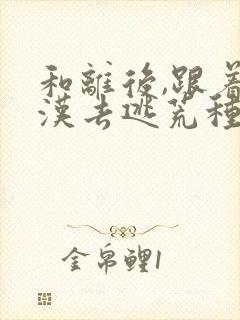 和離後,跟着
漢去逃荒種
金帛鯉1